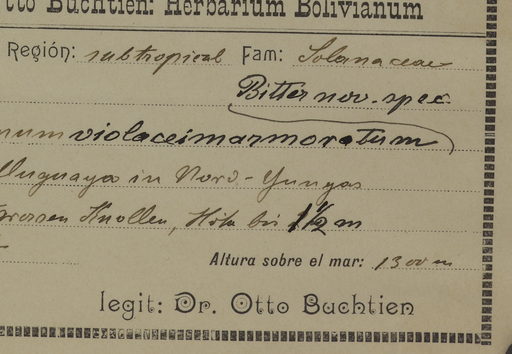 Otto Buchtien: Herbarium Bolivianum
Región: subtropical Fam: Solanaceae
Bitter nov. spec.
num violaceimarmoratum
in Nord-Yungas
grossen Knollen, Höhe bis 1 1/2 m
Altura sobre el mar: 1300 m
legit: Dr. Otto Buchtien